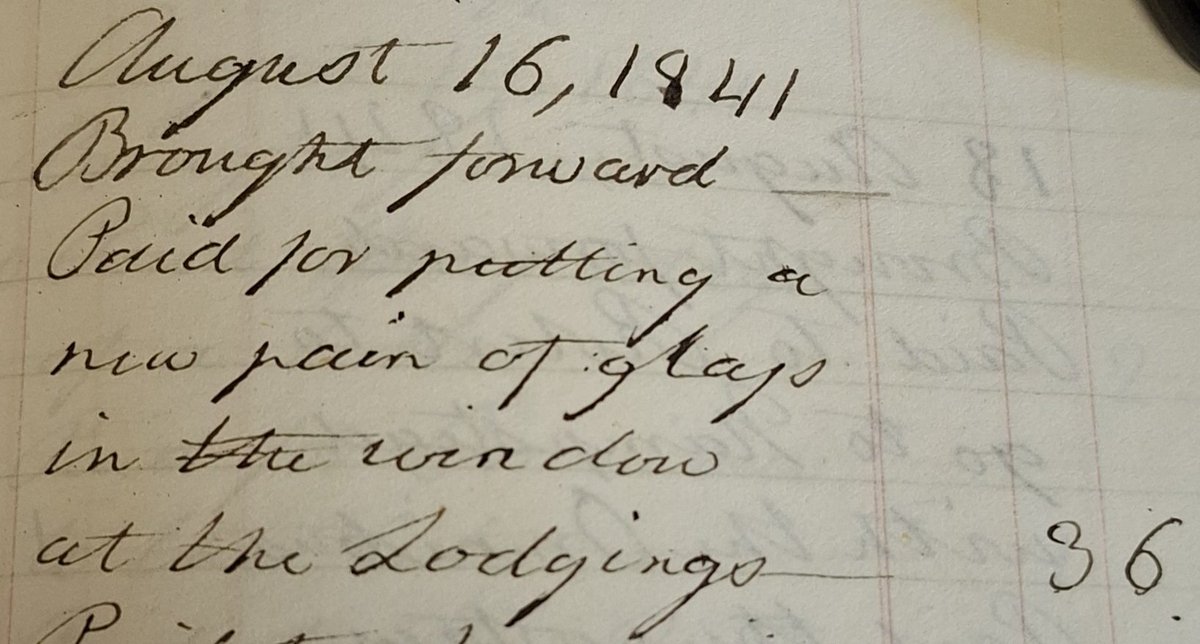 August 16, 1841
Brought forward
Paid for putting a
new pain of glass
in the window
at the Lodgings 3 6